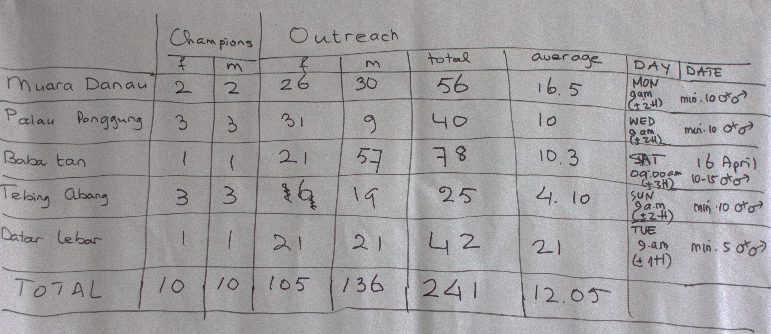 Champions Outreach
f m f m total average DAY DATE
Muara Danau 2 2 26 30 56 16.5 MON 9am (±2H) min. 10
Palau Ponggung 3 3 31 9 40 10 WED 9am (±2H) min. 10
Baba tan 1 1 21 57 78 10.3 SAT 09.00am (±3H) 16 April 10-15
Tebing Abang 3 3 6 19 25 4.10 SUN 9a.m (±2H) min. 10
Datar Lebar 1 1 21 21 42 21 TUE 9.am (±1H) min. 5
TOTAL 10 10 105 136 241 12.05